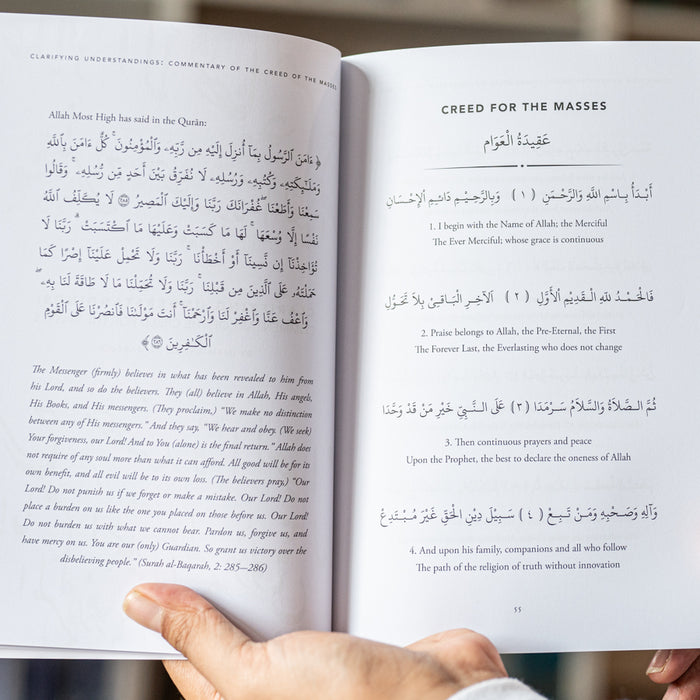 CLARIFYING UNDERSTANDINGS: COMMENTARY OF THE CREED OF THE MASSES
Allah Most High has said in the Qurān:
﴿ ءَامَنَ ٱلرَّسُولُ بِمَآ أُنزِلَ إِلَيْهِ مِن رَّبِّهِۦ وَٱلْمُؤْمِنُونَ ۚ كُلٌّ ءَامَنَ بِٱللَّهِ
وَمَلَٰٓئِكَتِهِۦ وَكُتُبِهِۦ وَرُسُلِهِۦ لَا نُفَرِّقُ بَيْنَ أَحَدٍ مِّن رُّسُلِهِۦ ۚ وَقَالُوا۟
سَمِعْنَا وَأَطَعْنَا ۖ غُفْرَانَكَ رَبَّنَا وَإِلَيْكَ ٱلْمَصِيرُ ٢٨٥ لَا يُكَلِّفُ ٱللَّهُ
نَفْسًا إِلَّا وُسْعَهَا ۚ لَهَا مَا كَسَبَتْ وَعَلَيْهَا مَا ٱكْتَسَبَتْ ۗ رَبَّنَا لَا
تُؤَاخِذْنَآ إِن نَّسِينَآ أَوْ أَخْطَأْنَا ۚ رَبَّنَا وَلَا تَحْمِلْ عَلَيْنَآ إِصْرًا كَمَا
حَمَلْتَهُۥ عَلَى ٱلَّذِينَ مِن قَبْلِنَا ۚ رَبَّنَا وَلَا تُحَمِّلْنَا مَا لَا طَاقَةَ لَنَا بِهِۦ ۖ
وَٱعْفُ عَنَّا وَٱغْفِرْ لَنَا وَٱرْحَمْنَآ ۚ أَنتَ مَوْلَىٰنَا فَٱنصُرْنَا عَلَى ٱلْقَوْمِ
ٱلْكَٰفِرِينَ ٢٨٦ ﴾
The Messenger (firmly) believes in what has been revealed to him from
his Lord, and so do the believers. They (all) believe in Allah, His angels,
His Books, and His messengers. (They proclaim,) “We make no distinction
between any of His messengers.” And they say, “We hear and obey. (We seek)
Your forgiveness, our Lord! And to You (alone) is the final return.” Allah does
not require of any soul more than what it can afford. All good will be for its
own benefit, and all evil will be to its own loss. (The believers pray,) “Our
Lord! Do not punish us if we forget or make a mistake. Our Lord! Do not
place a burden on us like the one you placed on those before us. Our Lord!
Do not burden us with what we cannot bear. Pardon us, forgive us, and
have mercy on us. You are our (only) Guardian. So grant us victory over the
disbelieving people.” (Surah al-Baqarah, 2: 285—286)
CREED FOR THE MASSES
عَقِيدَةُ الْعَوَام
أَبْدَأُ بِاسْمِ اللَّهِ وَالرَّحْمَنِ ( ١ ) وَبِالرَّحِيمِ دَائِمِ الْإِحْسَانِ
1. I begin with the Name of Allah; the Merciful
The Ever Merciful; whose grace is continuous
فَالْحَمْدُ لِلَّهِ الْقَدِيمِ الْأَوَّلِ ( ٢ ) اَلْآخِرِ الْبَاقِيْ بِلَا تَحَوُّلِ
2. Praise belongs to Allah, the Pre-Eternal, the First
The Forever Last, the Everlasting who does not change
ثُمَّ الصَّلَاةُ وَالسَّلَامُ سَرْمَدَا ( ٣ ) عَلَى النَّبِيِّ خَيْرِ مَنْ قَدْ وَحَّدَا
3. Then continuous prayers and peace
Upon the Prophet, the best to declare the oneness of Allah
وَآلِهِ وَصَحْبِهِ وَمَنْ تَبِعْ ( ٤ ) سَبِيلَ دِيْنِ الْحَقِّ غَيْرَ مُبْتَدِعْ
4. And upon his family, companions and all who follow
The path of the religion of truth without innovation
55